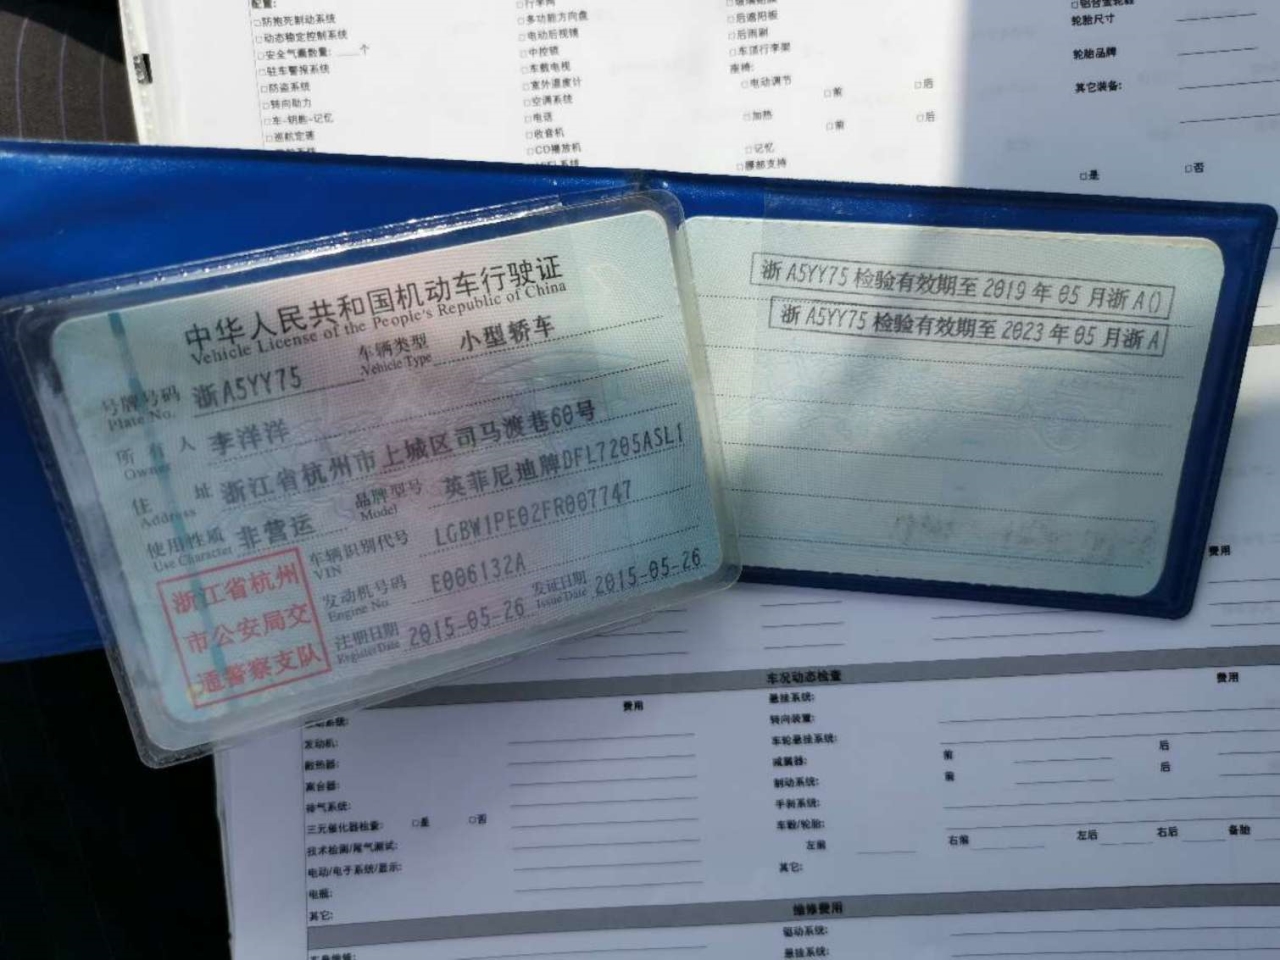 配置:
□防抱死制动系统
□动态稳定控制系统
□安全气囊数量: 个
□驻车警报系统
□防盗系统
□转向助力
□车-钥匙-记忆
□巡航定速
□多功能方向盘
□电动后视镜
□中控锁
□车载电视
□室外温度计
□空调系统
□电话
□收音机
□CD播放机
□后遮阳板
□后雨刷
□车顶行李架
座椅:
□电动调节
□前 □后
□加热
□前 □后
□记忆
□腰部支持
轮胎尺寸
轮胎品牌
其它装备:
□是 □否
中华人民共和国机动车行驶证
Vehicle License of the People's Republic of China
号牌号码 浙A5YY75 车辆类型 小型轿车
Plate No. Vehicle Type
所有人 李洋洋
Owner
住址 浙江省杭州市上城区司马渡巷60号
Address
使用性质 非营运 品牌型号 英菲尼迪牌DFL7205ASL1
Use Character Model
车辆识别代号 LGBW1PE02FR007747
VIN
发动机号码 E006132A
Engine No.
注册日期 2015-05-26 发证日期 2015-05-26
Register Date Issue Date
浙江省杭州
市公安局交
通警察支队
浙A5YY75检验有效期至2019年05月浙A()
浙A5YY75检验有效期至2023年05月浙A
费用
车况动态检查
费用
费用
发动机:
散热器:
离合器:
排气系统:
三元催化器检查: □是 □否
技术检测/尾气测试:
电动/电子系统/显示:
电瓶:
其它:
悬挂系统:
转向装置:
车轮悬挂系统: 前 后
减震器: 前 后
制动系统:
手刹系统:
车毂/轮胎:
左前 右前 左后 右后 备胎
其它:
维修费用
驱动系统:
悬挂系统: